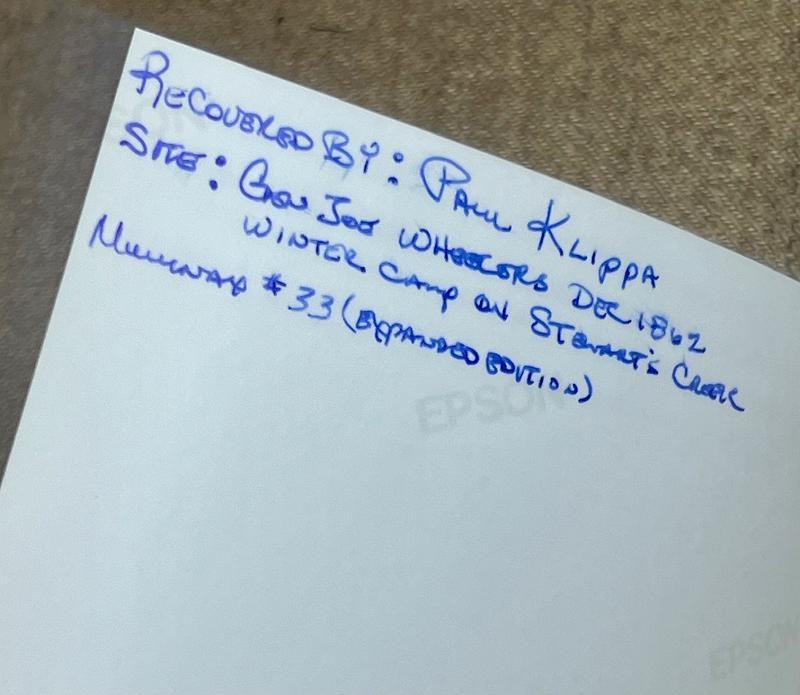 RECOVERED BY: PAUL KLIPPA
SITE: GEN JOE WHEELERS DEC 1862
WINTER CAMP ON STEWART'S CREEK
MULLINAX #33 (EXPANDED EDITION)
EPSON
EPSON